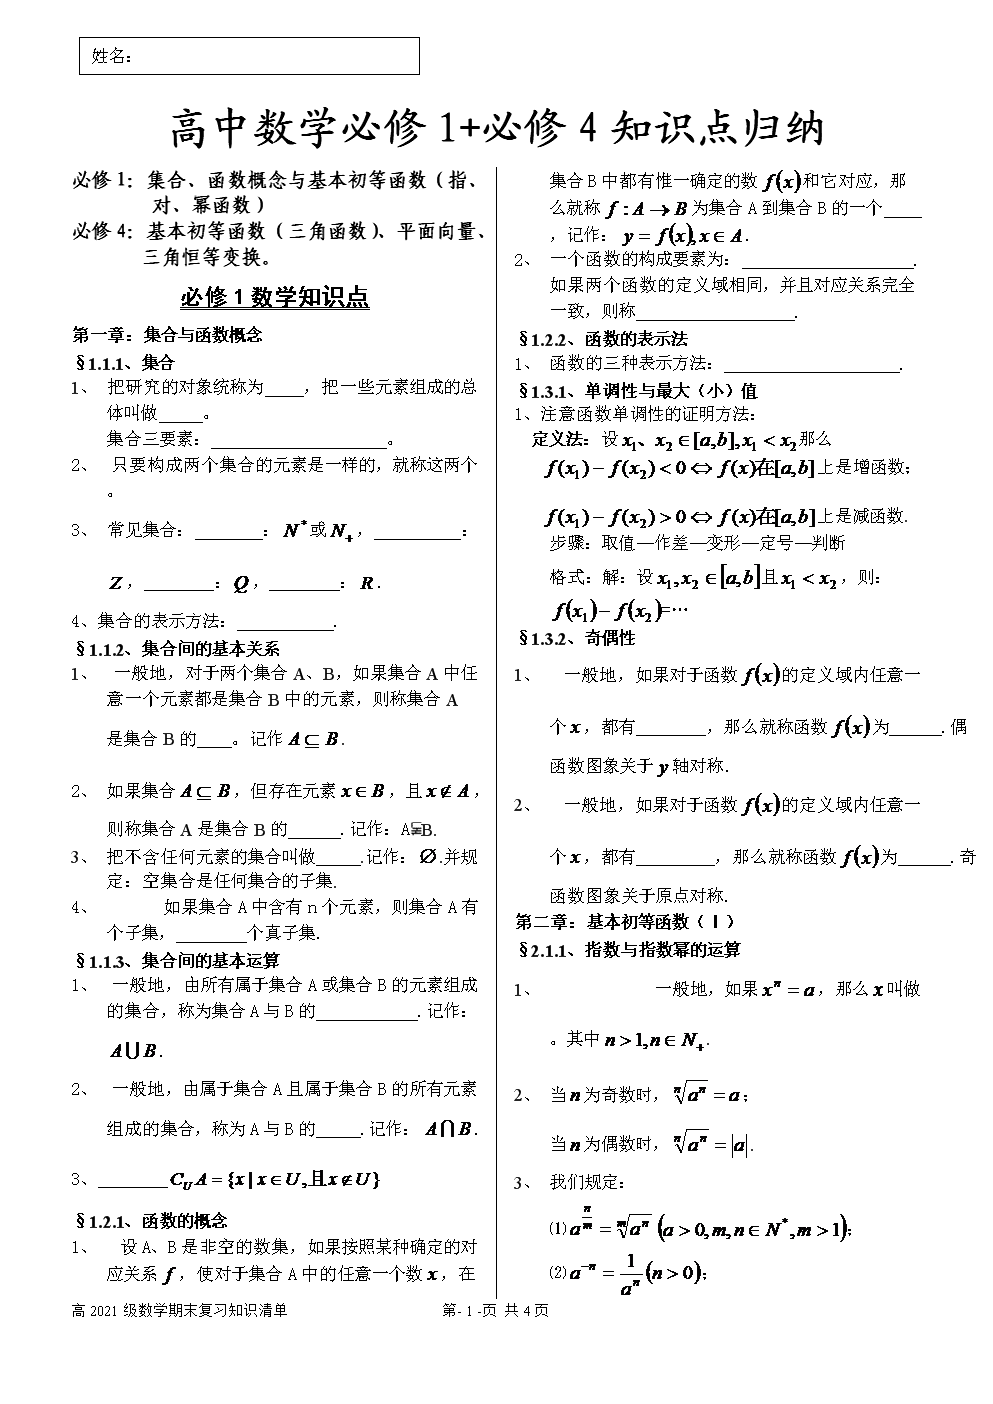 姓名：
高中数学必修1+必修4知识点归纳
必修1：集合、函数概念与基本初等函数（指、
对、幂函数）
必修4：基本初等函数（三角函数）、平面向量、
三角恒等变换。
必修1数学知识点
第一章：集合与函数概念
§1.1.1、集合
1、 把研究的对象统称为____，把一些元素组成的总
体叫做_____。
集合三要素：____________________。
2、 只要构成两个集合的元素是一样的，就称这两个
。
3、 常见集合：________：N*或N₊，__________：
Z，________：Q，________：R.
4、集合的表示方法：___________.
§1.1.2、集合间的基本关系
1、 一般地，对于两个集合A、B，如果集合A中任
意一个元素都是集合B中的元素，则称集合A
是集合B的____。记作A⊆B.
2、 如果集合A⊆B，但存在元素x∈B，且x∉A，
则称集合A是集合B的______.记作：A⫋B.
3、 把不含任何元素的集合叫做_____.记作：∅.并规
定：空集合是任何集合的子集.
4、 如果集合A中含有n个元素，则集合A有
个子集，________个真子集.
§1.1.3、集合间的基本运算
1、 一般地，由所有属于集合A或集合B的元素组成
的集合，称为集合A与B的____________.记作：
A⋃B.
2、 一般地，由属于集合A且属于集合B的所有元素
组成的集合，称为A与B的_____.记作：A⋂B.
3、________C_U A={x|x∈U,且x∉U}
§1.2.1、函数的概念
1、 设A、B是非空的数集，如果按照某种确定的对
应关系f，使对于集合A中的任意一个数x，在
集合B中都有惟一确定的数f(x)和它对应，那
么就称f:A→B为集合A到集合B的一个____
，记作：y=f(x),x∈A.
2、 一个函数的构成要素为：____________________.
如果两个函数的定义域相同，并且对应关系完全
一致，则称__________________.
§1.2.2、函数的表示法
1、 函数的三种表示方法：____________________.
§1.3.1、单调性与最大（小）值
1、注意函数单调性的证明方法：
定义法：设x₁、x₂∈[a,b],x₁<x₂那么
f(x₁)−f(x₂)<0⇔f(x)在[a,b]上是增函数；
f(x₁)−f(x₂)>0⇔f(x)在[a,b]上是减函数.
步骤：取值—作差—变形—定号—判断
格式：解：设x₁,x₂∈[a,b]且x₁<x₂，则：
f(x₁)−f(x₂)=…
§1.3.2、奇偶性
1、 一般地，如果对于函数f(x)的定义域内任意一
个x，都有________，那么就称函数f(x)为______.偶
函数图象关于y轴对称.
2、 一般地，如果对于函数f(x)的定义域内任意一
个x，都有_________，那么就称函数f(x)为______.奇
函数图象关于原点对称.
第二章：基本初等函数（Ⅰ）
§2.1.1、指数与指数幂的运算
1、 一般地，如果xⁿ=a，那么x叫做
。其中n>1,n∈N₊.
2、 当n为奇数时，ⁿ√aⁿ=a；
当n为偶数时，ⁿ√aⁿ=|a|.
3、 我们规定：
⑴a^(n/m)=ᵐ√aⁿ (a>0,m,n∈N*,m>1)；
⑵a⁻ⁿ=1/aⁿ(n>0)；
高2021级数学期末复习知识清单 第- 1 -页 共4页